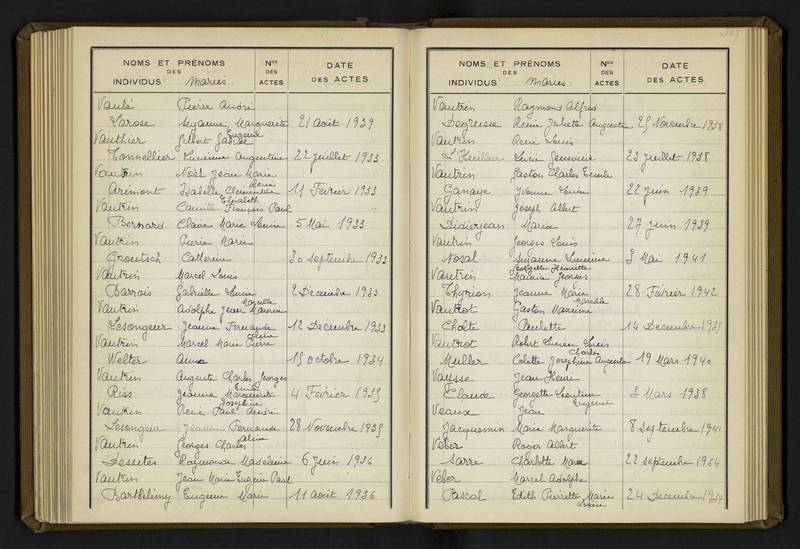 NOMS ET PRÉNOMS
DES
INDIVIDUS Mariés.
Nos
DES
ACTES
DATE
DES ACTES
Vaulé Pierre André
Larose Suzanne Marguerite 21 Août 1939
Vauthier Gilbert Gaston Eugène
Tonnellier Lucienne Augustine 22 juillet 1933
Vautrin Noël Jean Marie
Arimont Isabelle Clémentine Renée 11 Février 1933
Vautrin Camille François Paul
Bernard Claire Marie Louise Elisabeth 5 Mai 1933
Vautrin Pierre Marie
Groutsch Catherine 30 septembre 1933
Vautrin Marcel Louis
Barrois Gabrielle Louise 2 Décembre 1933
Vautrin Adolphe Jean Maurice
Lesongeur Jeanne Fernande Marcelle 12 Décembre 1933
Vautrin Marcel Marie Pierre
Welter Anna 15 octobre 1934
Vautrin Auguste Charles Georges
Riss Jeanne Marguerite 4 Février 1935
Vautrin René Paul André Joséphine
Lesongeur Jeanne Fernande 28 Novembre 1935
Vautrin Georges Charles
Dessites Raymonde Madeleine 6 juin 1936
Vautrin Jean Marie Eugène Paul
Barthélémy Eugénie Marie 11 août 1936
NOMS ET PRÉNOMS
DES
INDIVIDUS Mariés.
Nos
DES
ACTES
DATE
DES ACTES
Vautrin Raymond Alfred
Degrusse Reine Juliette Augusta 25 Novembre 1938
Vautrin René Louis
L'Huillier Lucie Geneviève 23 juillet 1938
Vautrin Gaston Charles Emile
Ganaye Yvonne Louise 22 juin 1939
Vautrin Joseph Albert
Didierjean Maria 27 juin 1939
Vautrin Georges Louis
Nosal Suzanne Lucienne 3 Mai 1941
Georgette Henriette
Vautrin Maurice Georges
Thyrion Jeanne Marie 28 Février 1942
Vautrot Gaston Maxime Marcelle
Cholté Paulette 14 Décembre 1935
Vautrot Robert Lucien Louis
Charles
Muller Colette Joséphine Augusta 19 Mars 1940
Vaysse Jean Henri
Claude Georgette Léontine 3 Mars 1938
Veaux Jean Eugène
Jacquemin Marie Marguerite 8 septembre 1941
Véber Roger Albert
Sarre Charlotte Marie 22 septembre 1934
Véber Marcel Adolphe
Pascal Edith Pierrette Marie 24 Décembre 1934
Louise